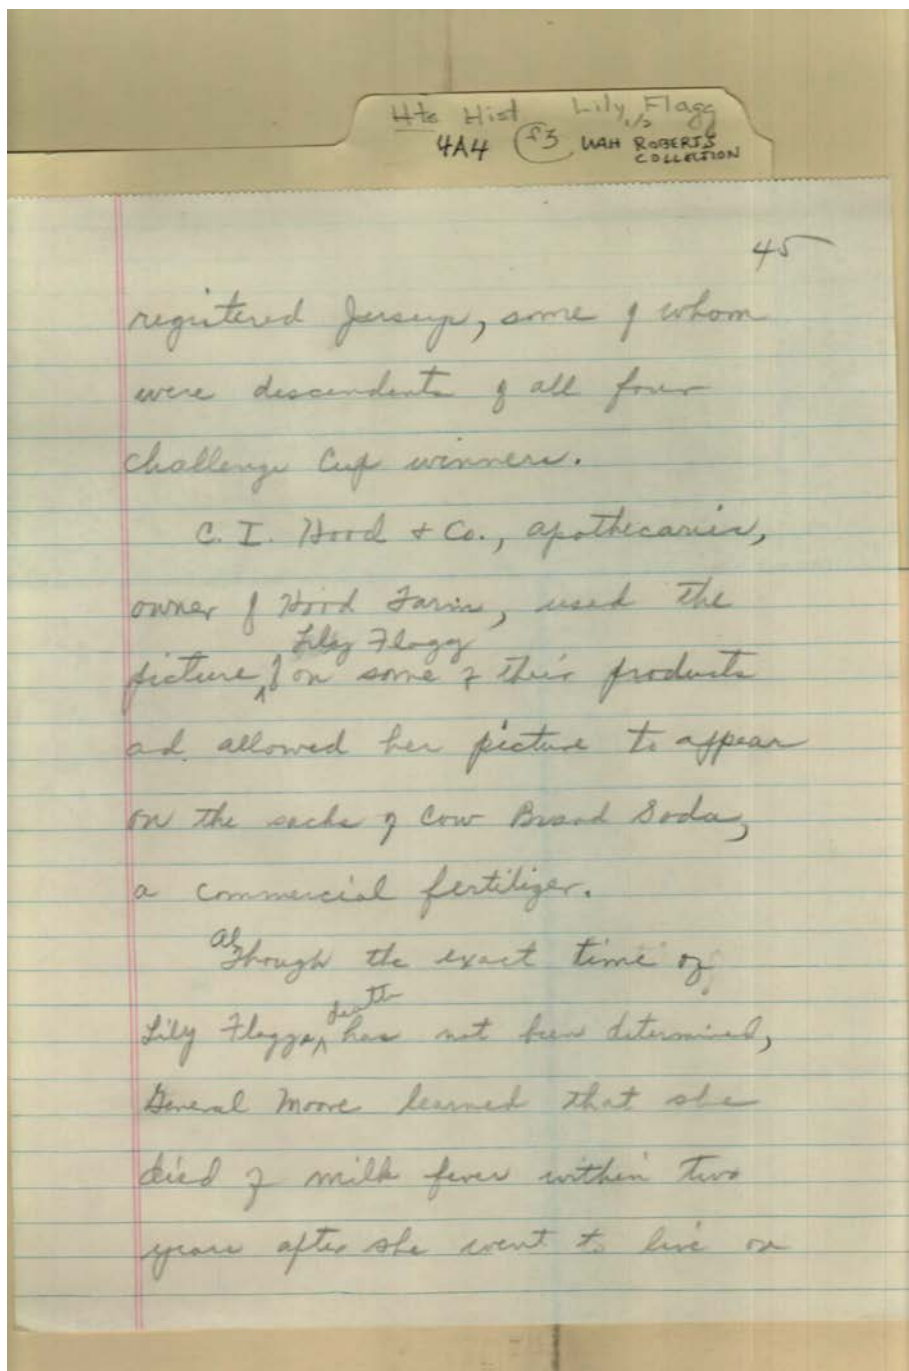 Hts Hist Lily Flagg
1/2
4A4 f3 UAH ROBERTS
COLLECTION
45
registered Jerseys, some of whom
were descendents of all four
challenge Cup winners.
C. I. Hood + Co., apothecaries,
owner of Hood Farm, used the
Lily Flagg
picture ^ of on some of their products
ad allowed her picture to appear
on the sacks of Cow Brand Soda,
a commercial fertilizer.
Although the exact time of
death
Lily Flaggs ^ has not been determined,
General Moore learned that she
died of milk fever within two
years after she went to live on